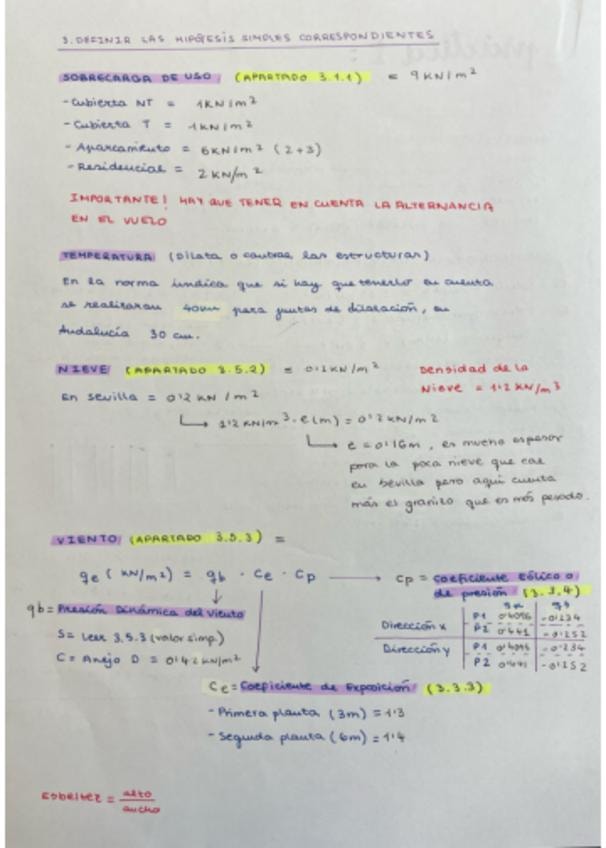 3. DEFINIR LAS HIPÓTESIS SIMPLES CORRESPONDIENTES
SOBRECARGA DE USO (APARTADO 3.1.1) = 9 KN/m²
- Cubierta NT = 1KN/m²
- Cubierta T = 1KN/m²
- Aparcamiento = 6KN/m² (2+3)
- Residencial = 2 KN/m²
IMPORTANTE! HAY QUE TENER EN CUENTA LA ALTERNANCIA
EN EL VUELO
TEMPERATURA (Dilata o contrae las estructuras)
En la norma indica que si hay que tenerlo en cuenta
se realizaran 40m para juntas de dilatación, en
Andalucía 30 cm.
NIEVE (APARTADO 3.5.2) = 0'2 KN/m²
Densidad de la
Nieve = 1'2 KN/m³
En Sevilla = 0'2 KN/m²
1'2 KN/m³ · e(m) = 0'2 KN/m²
e = 0'16m, es mucho espesor
para la poca nieve que cae
en Sevilla pero aquí cuenta
más el granizo que es más pesado.
VIENTO (APARTADO 3.5.3) =
qe (KN/m²) = qb · Ce · Cp → Cp = coeficiente eólico o
de presión (3.3.4)
qb = Presión Dinámica del Viento
S = Leer 3.5.3 (valor simp.)
C = Anejo D = 0'42 KN/m²
Dirección x P1 -0'234
P2 0'441 -0'252
Dirección y P1 -0'234
P2 0'441 -0'252
Ce = Coeficiente de Exposición (3.3.3)
- Primera planta (3m) = 1'3
- Segunda planta (6m) = 1'4
Esbeltez = alto
ancho